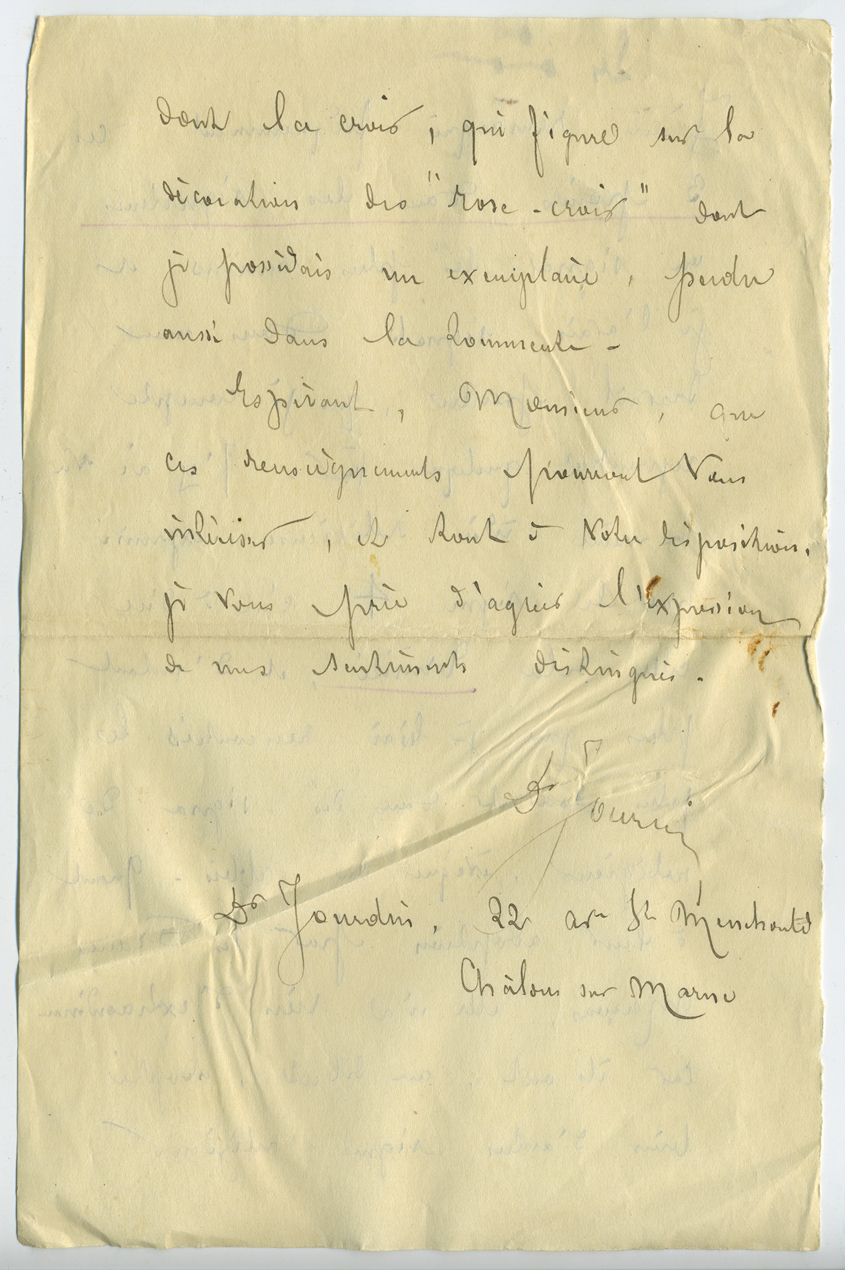 dont la croix, qui figure sur la
décoration des "Rose-croix" dont
je possédais un exemplaire, perdu
aussi dans la tourmente -
Espérant, Monsieur, que
ces renseignements pourront vous
intéresser, et tout à votre disposition,
je vous prie d'agréer l'expression
de mes sentiments distingués.
Dr
Dr Jourdin, 22 ave Ste Menehould
Châlons sur Marne